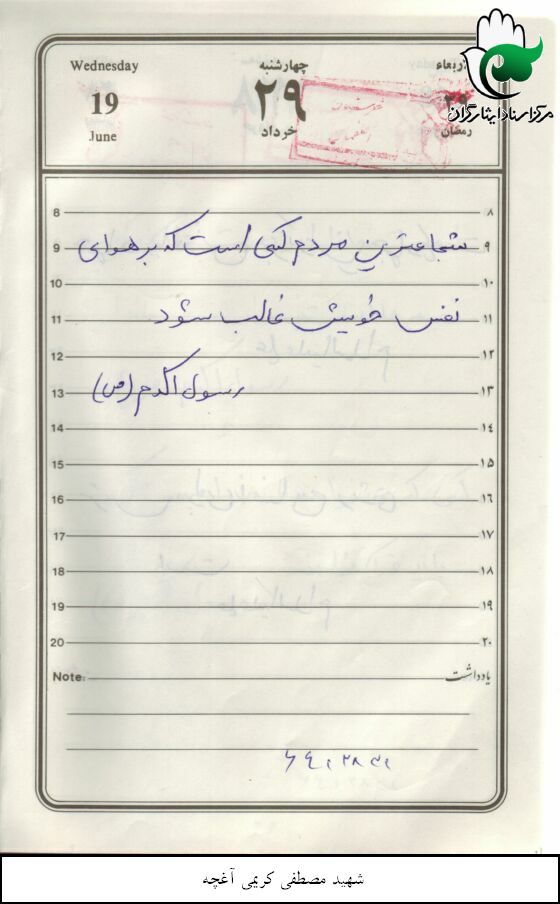 مرکز اسناد ایثارگران
Wednesday
19
June
چهارشنبه
۲۹
خرداد
اربعاء
۲۹
رمضان
8 ۸
9 شجاعترین مردم کسی است که بر هوای ۹
10 ۱۰
11 نفس خویش غالب شود ۱۱
12 ۱۲
13 رسول اکرم (ص) ۱۳
14 ۱۴
15 ۱۵
16 ۱۶
17 ۱۷
18 ۱۸
19 ۱۹
20 ۲۰
Note: یادداشت
شهید مصطفی کریمی آغچه